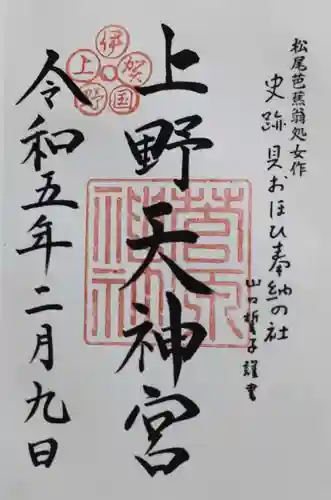 松尾芭蕉翁処女作
史跡 貝おほひ奉納の社
山口哲子謹書
上野天神宮
伊賀国上野
菅原神社
令和五年二月九日